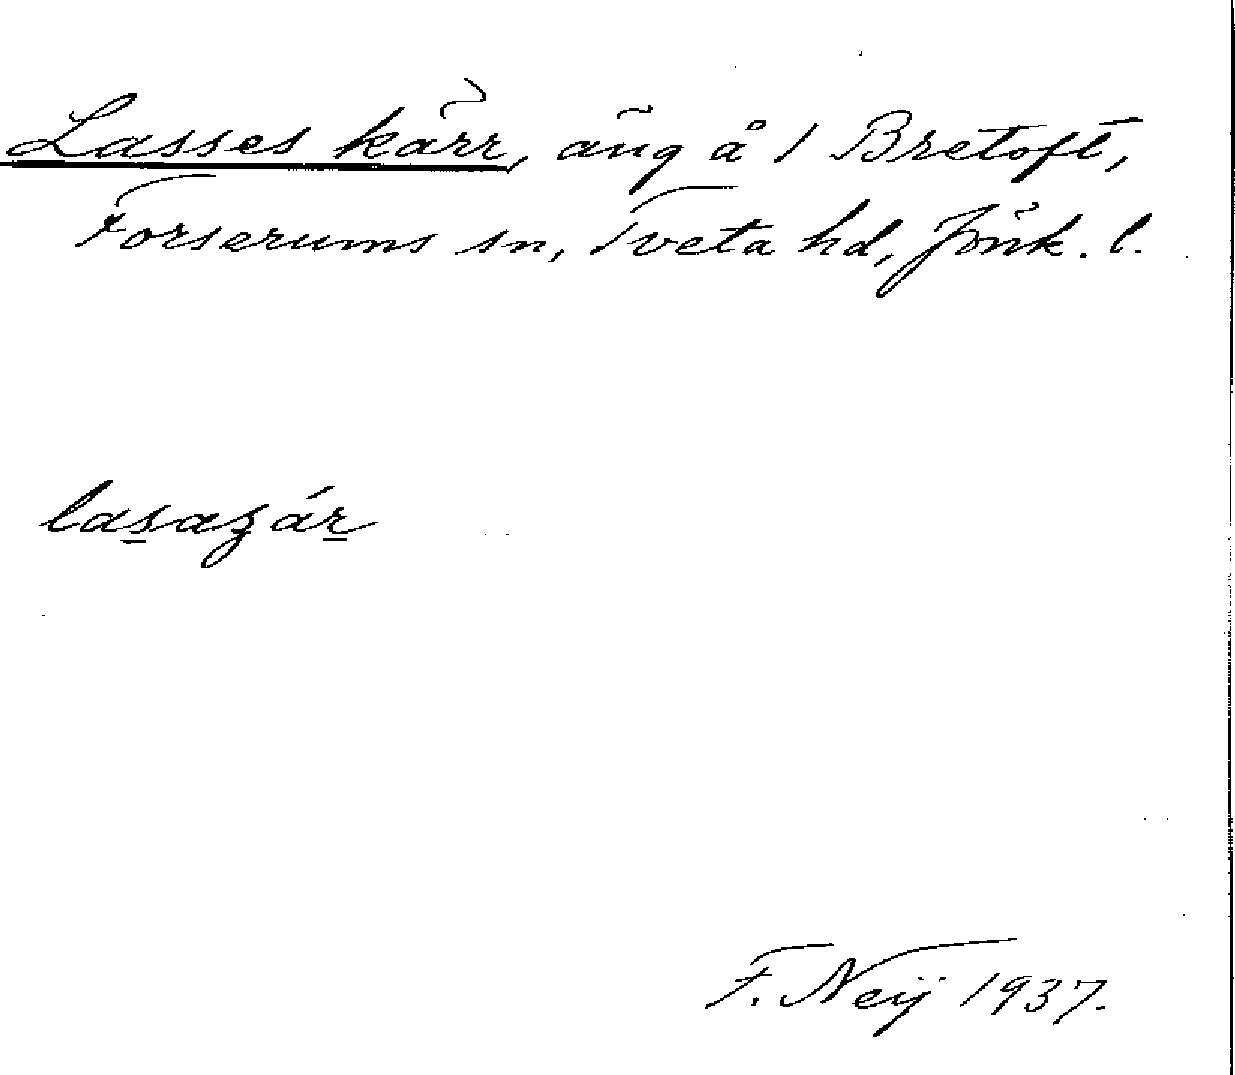 Lasses kärr, äng å 1 Bretoft,
Forserums sn, Tveta hd, Jönk. l.
F. Neij 1937.